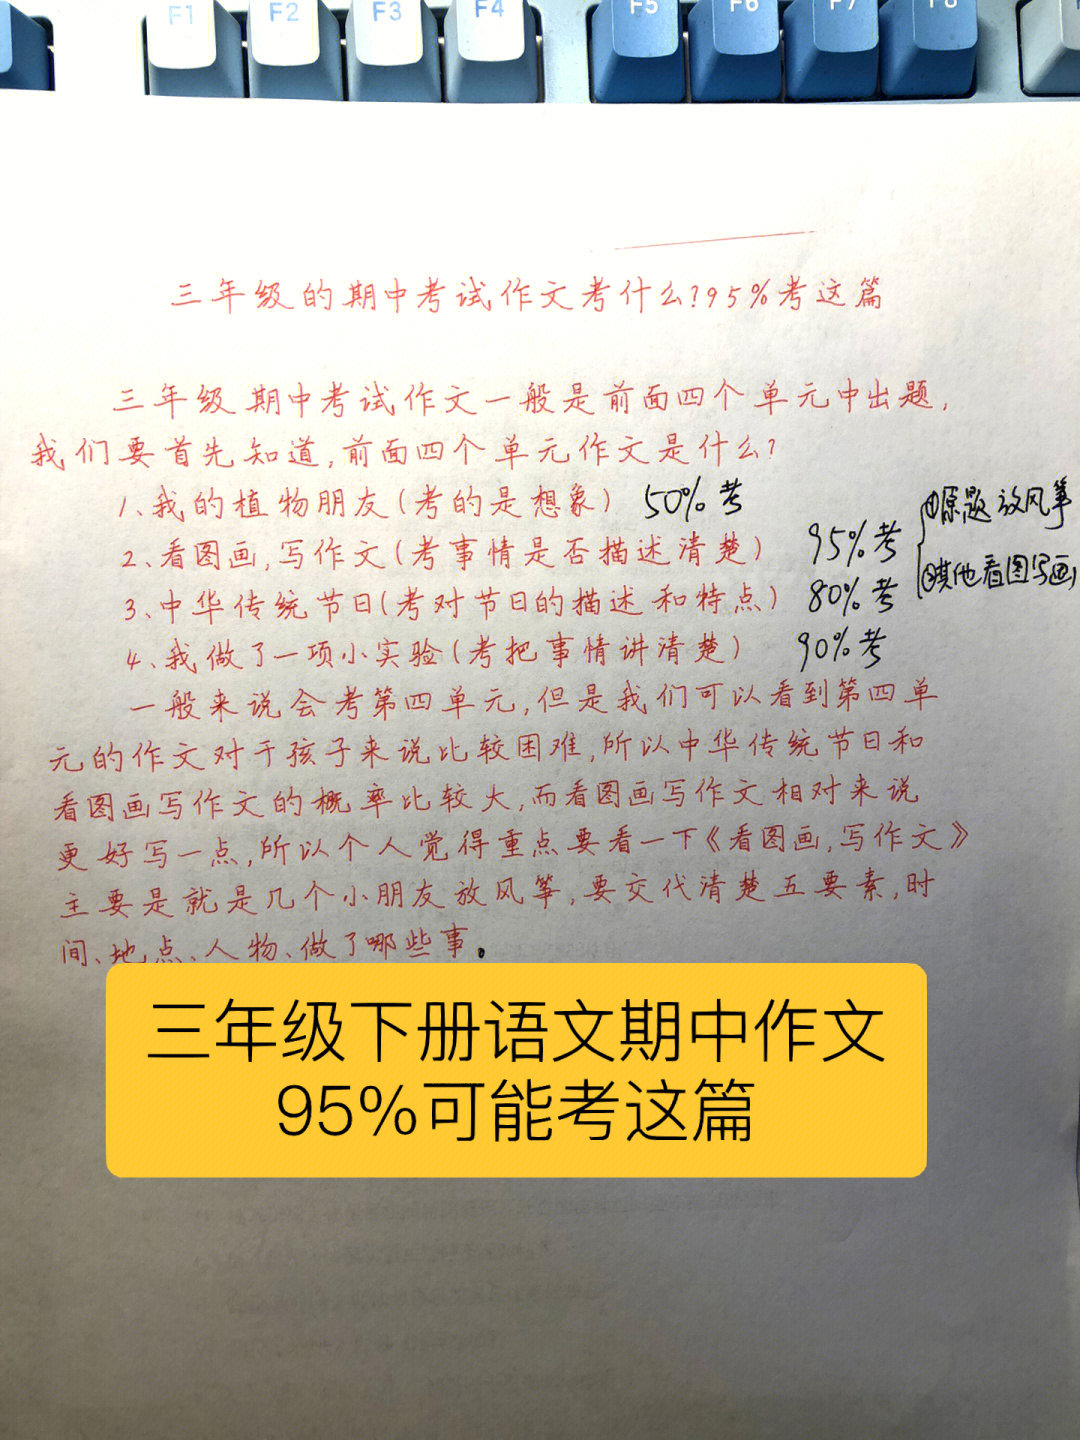 F1 F2 F3 F4 F5 F6 F7 F8
三年级的期中考试作文考什么?95%考这篇
三年级期中考试作文一般是前面四个单元中出题,
我们要首先知道,前面四个单元作文是什么?
1、我的植物朋友(考的是想象) 50%考
2、看图画,写作文(考事情是否描述清楚) 95%考 ①原题 放风筝
②其他看图写画
3、中华传统节日(考对节日的描述和特点) 80%考
4、我做了一项小实验(考把事情讲清楚) 90%考
一般来说会考第四单元,但是我们可以看到第四单
元的作文对于孩子来说比较困难,所以中华传统节日和
看图画写作文的概率比较大,而看图画写作文相对来说
更好写一点,所以个人觉得重点要看一下《看图画,写作文》
主要是就是几个小朋友放风筝,要交代清楚五要素,时
间、地点、人物、做了哪些事。
三年级下册语文期中作文
95%可能考这篇